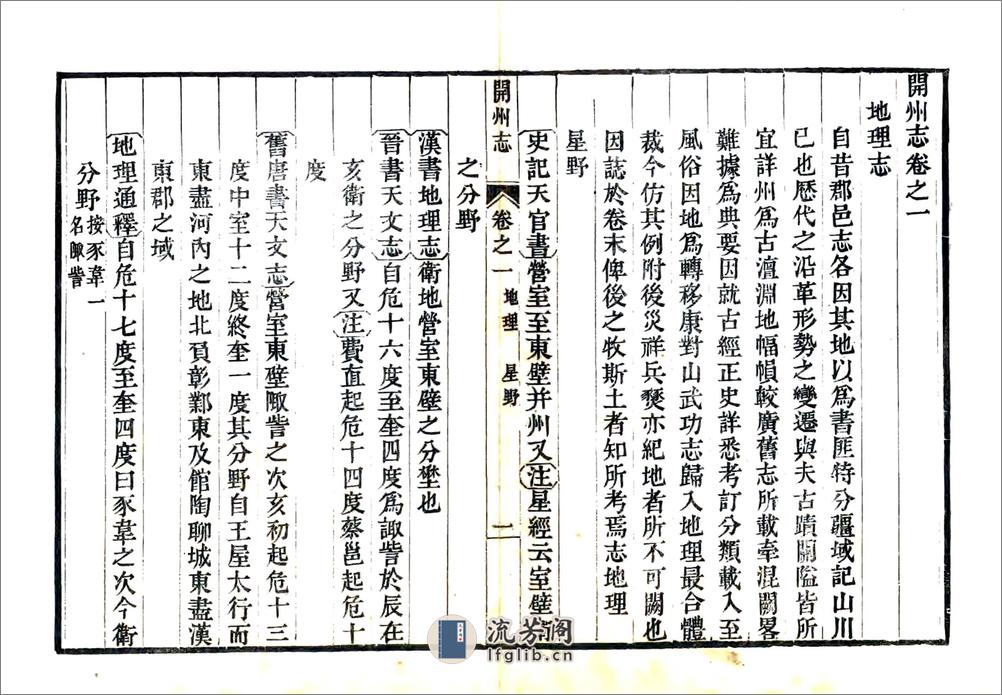 開州志卷之一
地理志
自昔郡邑志各因其地以爲書匪特分疆域記山川
已也歷代之沿革形勢之變遷與夫古蹟關隘皆所
宜詳州爲古澶淵地幅幀較廣舊志所載牽混闕畧
難據爲典要因就古經正史詳悉考訂分類載入至
風俗因地爲轉移康對山武功志歸入地理最合體
裁今仿其例附後災祥兵燹亦紀地者所不可闕也
因誌於卷末俾後之牧斯土者知所考焉志地理
星野
史記天官書營室至東壁并州又注星經云室壁
開州志 卷之一 地理 星野 一
之分野
漢書地理志衛地營室東壁之分壄也
晉書天文志自危十六度至奎四度爲諏訾於辰在
亥衛之分野又注費直起危十四度蔡邕起危十
度
舊唐書天文志營室東壁陬訾之次亥初起危十三
度中室十二度終奎一度其分野自王屋太行而
東盡河內之地北負彰鄴東及館陶聊城東盡漢
東郡之域
地理通釋自危十七度至奎四度曰豕韋之次今衛
分野按豕韋一
名陬訾
流芳阁
lfglib.cn